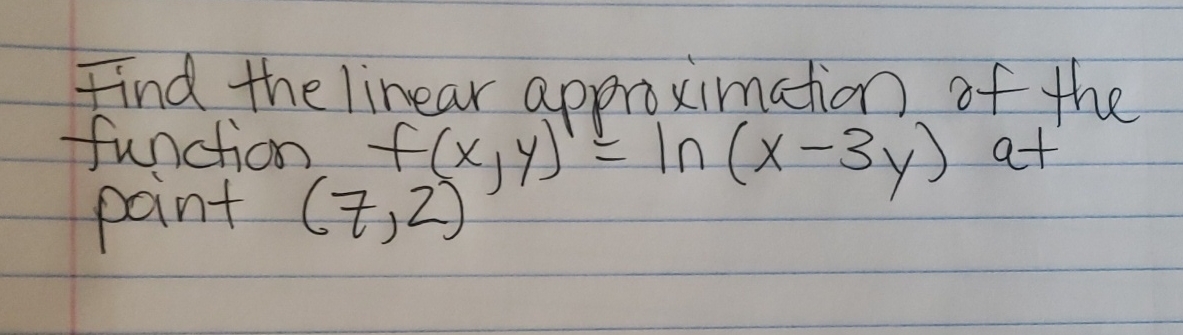 Find the linear approximation of the
function f(x,y) = ln(x-3y) at
point (7,2)